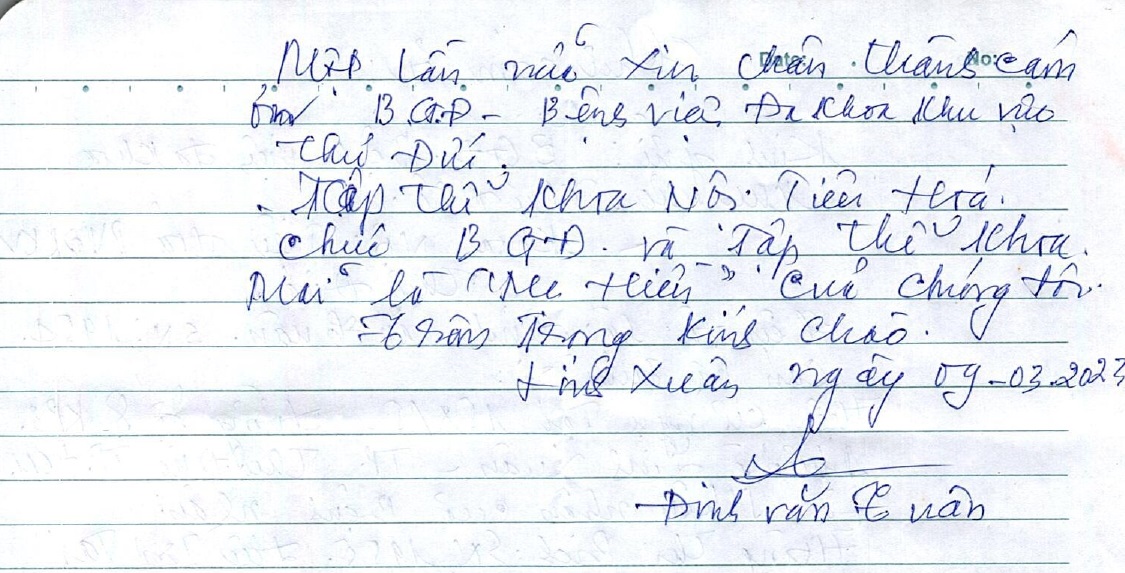 Date: No:
Một lần nữa xin chân thành cảm
ơn B.G.Đ - Bệnh viện Đa Khoa Khu vực
Thủ Đức.
- Tập thể Khoa Nội Tiêu Hoá.
Chúc B.G.Đ. và Tập thể Khoa.
Mãi là "Mẹ Hiền" của chúng tôi.
Trân Trọng Kính Chào.
Xuân ngày 09-03-2023
Đinh Văn Xuân